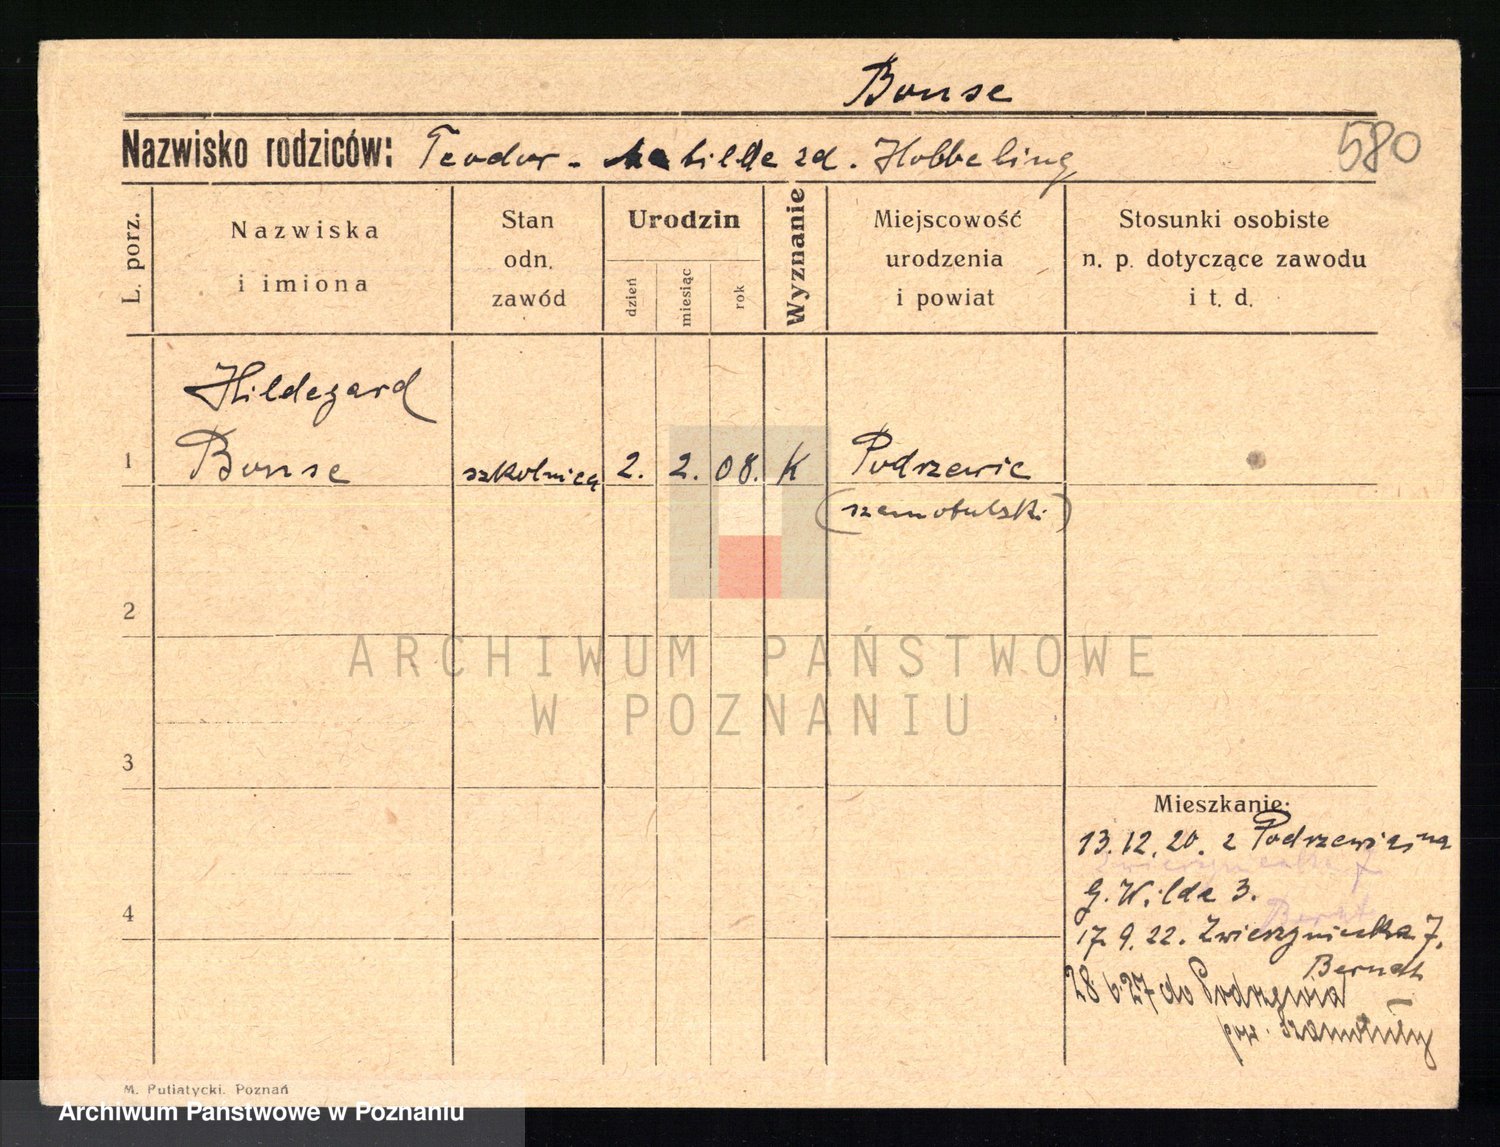 Bonse
Nazwisko rodziców: Teodor - Matilde zd. Hobbeling
580
L. porz.
Nazwiska
i imiona
Stan
odn.
zawód
Urodzin
dzień
miesiąc
rok
Wyznanie
Miejscowość
urodzenia
i powiat
Stosunki osobiste
n. p. dotyczące zawodu
i t. d.
Hildegard
1 Bonse szkolnica 2. 2. 08. K Podrzewie
(szamotulski)
2
ARCHIWUM PAŃSTWOWE
W POZNANIU
3
4
Mieszkanie:
13.12.20. z Podrzewia na
Zwierzyniecka 7
G. Wilda 3.
Bernat
17.9.22. Zwierzyniecka 7.
Bernat
28 6 27 do Podrzewia
pow. Szamotuły
M. Putiatycki. Poznań
Archiwum Państwowe w Poznaniu